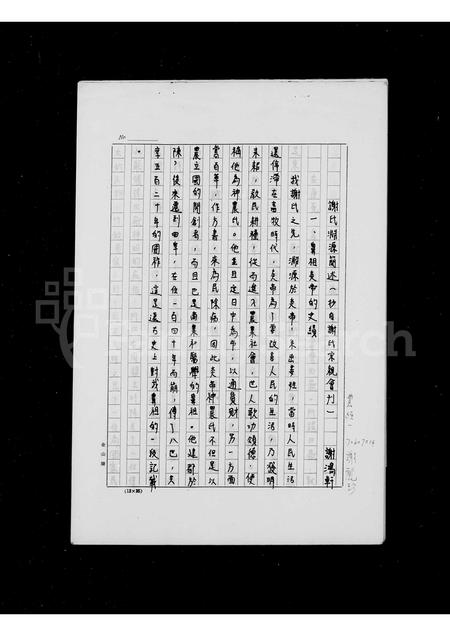 謝氏淵源簡述(抄自謝氏宗親會刊) 謝鴻軒
一、鼻祖炎帝的史蹟
我謝氏之先,溯源於炎帝,系出姜姓,當時人民生活
還停滯在畜牧時代,炎帝為了要改善人民的生活,乃發明
耒耜,教民耕種,從而進入農業社會,巴人歌功頌德,便
稱他為神農氏。他並且定日中為市,以通貨財,另一方面
嘗百草,作方書,來為民除病,因此炎帝神農氏不但是以
農立國的開創者,而且巴是商業和醫學的鼻祖。他建都於
陳,後來遷到曲阜,在位一百四十年而崩,傳了八世,共
享五百二十年的國祚,這是遠古史上對我鼻祖的一段記載
。
No
金山牌
(12×25)